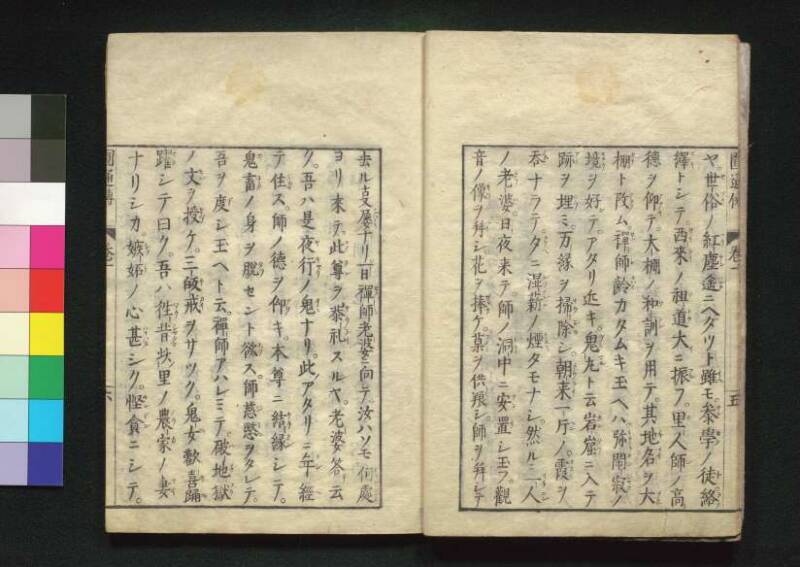 ヤ世俗ノ紅塵遙ニヘダツト雖モ。参學ノ徒絡
繹トシテ。西來ノ祖道大ニ振フ。里人師ノ高
德ヲ仰テ。大棚ノ和訓ヲ用テ。其地名ヲ大
棚ト改ム禪師齡カタムキ玉ヘハ弥閑寂ノ
境ヲ好テ。アタリ近キ。鬼丸ト云岩窟ニ入テ
跡ヲ埋ミ。万緣ヲ掃除シ。朝来一斤ノ。霞ヲ
吞ナラテタニ湿薪ノ煙タモナシ然ルニ一人
ノ老婆。日夜来テ師ノ洞中ニ安置シ玉フ。觀
音ノ像ヲ拜シ花ヲ捧ケ。菓ヲ供飛シ師ヲ拜シテ
五
去ル亙屢ナリ一日禪師老婆ニ向テ。汝ハソモ何處
ヨリ來テ。此尊ヲ恭礼スルヤ。老婆答云
ク。吾ハ是夜行ノ鬼ナリ。此アタリニ年ヲ經
テ住ス。師ノ德ヲ仰キ。本尊ニ結縁シテ。
鬼畜ノ身ヲ脱セント欲ス。師慈愍ヲタレテ。
吾ヲ度シ玉ヘト云。禪師アハレミテ。破地獄
ノ文ヲ授ケ。三皈戒ヲサツク。鬼女歡喜踊
躍シテ曰ク。吾ハ徃昔此里ノ農家ノ妻
ナリシカ。嫉妬ノ心甚シク。慳貪ニシテ。
六